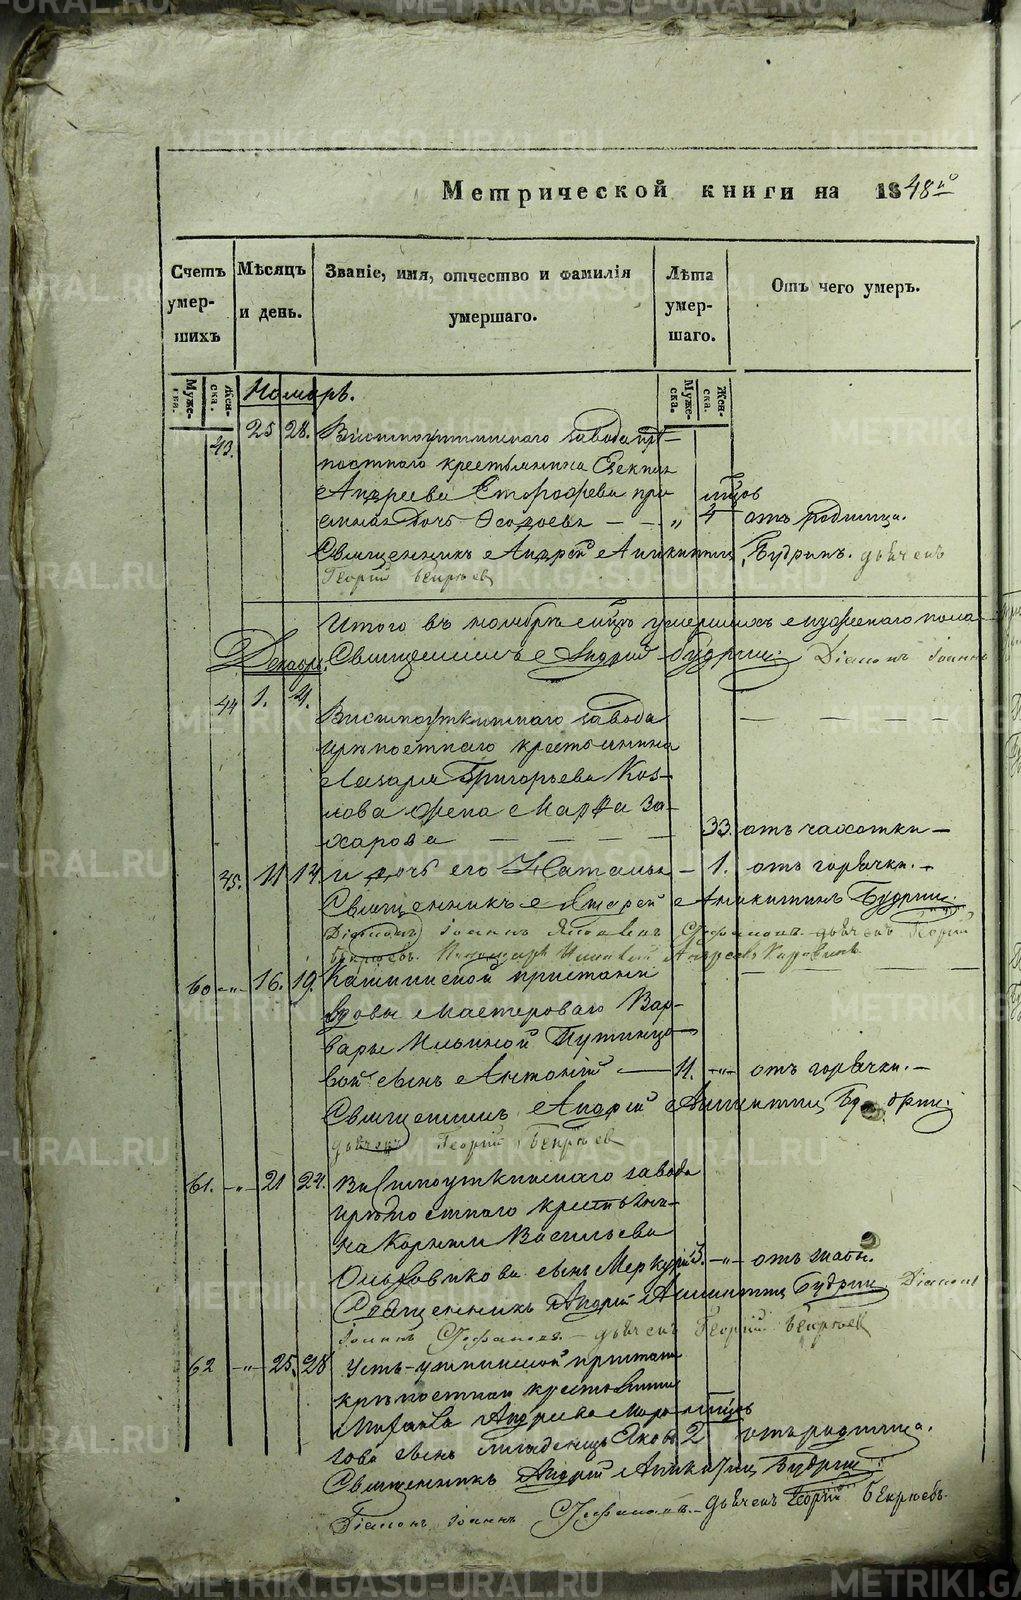 METRIKI.GASO-URAL.RU
Метрической книги на 1848й
Счетъ умер-шихъ
Мѣсяцъ и день.
Званіе, имя, отчество и фамилія умершаго.
Лѣта умер-шаго.
Отъ чего умеръ.
Муже-ска. Жен-ска. Муже-ска. Жен-ска.
Ноябрь.
43. 25 28. Висимоуткинскаго завода крѣ-
постнаго крестьянина
Андреева при
дочь Феодосья — — „ 4 мцов отъ родимца.
Священникъ Андрей Аникитинъ Будринъ. дьячекъ
Георгий Бекрюев
Итого въ ноябрѣ мцѣ умершихъ мужескаго пола
Священникъ Андрей Будрин. Діаконъ Іоаннъ
Декабрь.
44 1. 4. Висимоуткинскаго завода
крѣпостнаго крестьянина
Лазаря Григорьева Коз-
лова жена Марфа За-
харова — — — 33. отъ чахотки —
45. 11 14. и дочь его Наталья — 1. отъ горячки. —
Священникъ Андрей Аникитинъ Будрин.
Діаконъ Іоаннъ Яковлевъ Стефановъ. дьячекъ Георгий
Бекрюевъ. Пономарь Андреев
60 —„— 16. 19. Кашкинской пристани
вдовы мастероваго Вар-
вары Ильиной Путинцо-
вой сынъ Антоній — 11. —„— отъ горячки. —
Священникъ Андрей Аникитин Будрин.
дьячекъ Георгий Бекрюев
61. —„— 21 24. Висимоуткинскаго завода
крѣпостнаго крестьяни-
на Корнила Васильева
Ольховикова сынъ Меркурій 3. —„— отъ жабы.
Священникъ Андрей Аникитин Будрин. Діаконъ
Іоаннъ Стефановъ. — дьячекъ Георгий Бекрюев
62 —„— 25. 28 Усть-уткинской пристани
крѣпостнаго крестьянина
Михаила Андреева
гова сынъ младенецъ Яковъ 2 мцов отъ родимца.
Священникъ Андрей Аникитин Будрин:
Діаконъ Іоаннъ Стефановъ. — дьячекъ Георгий Бекрюевъ.